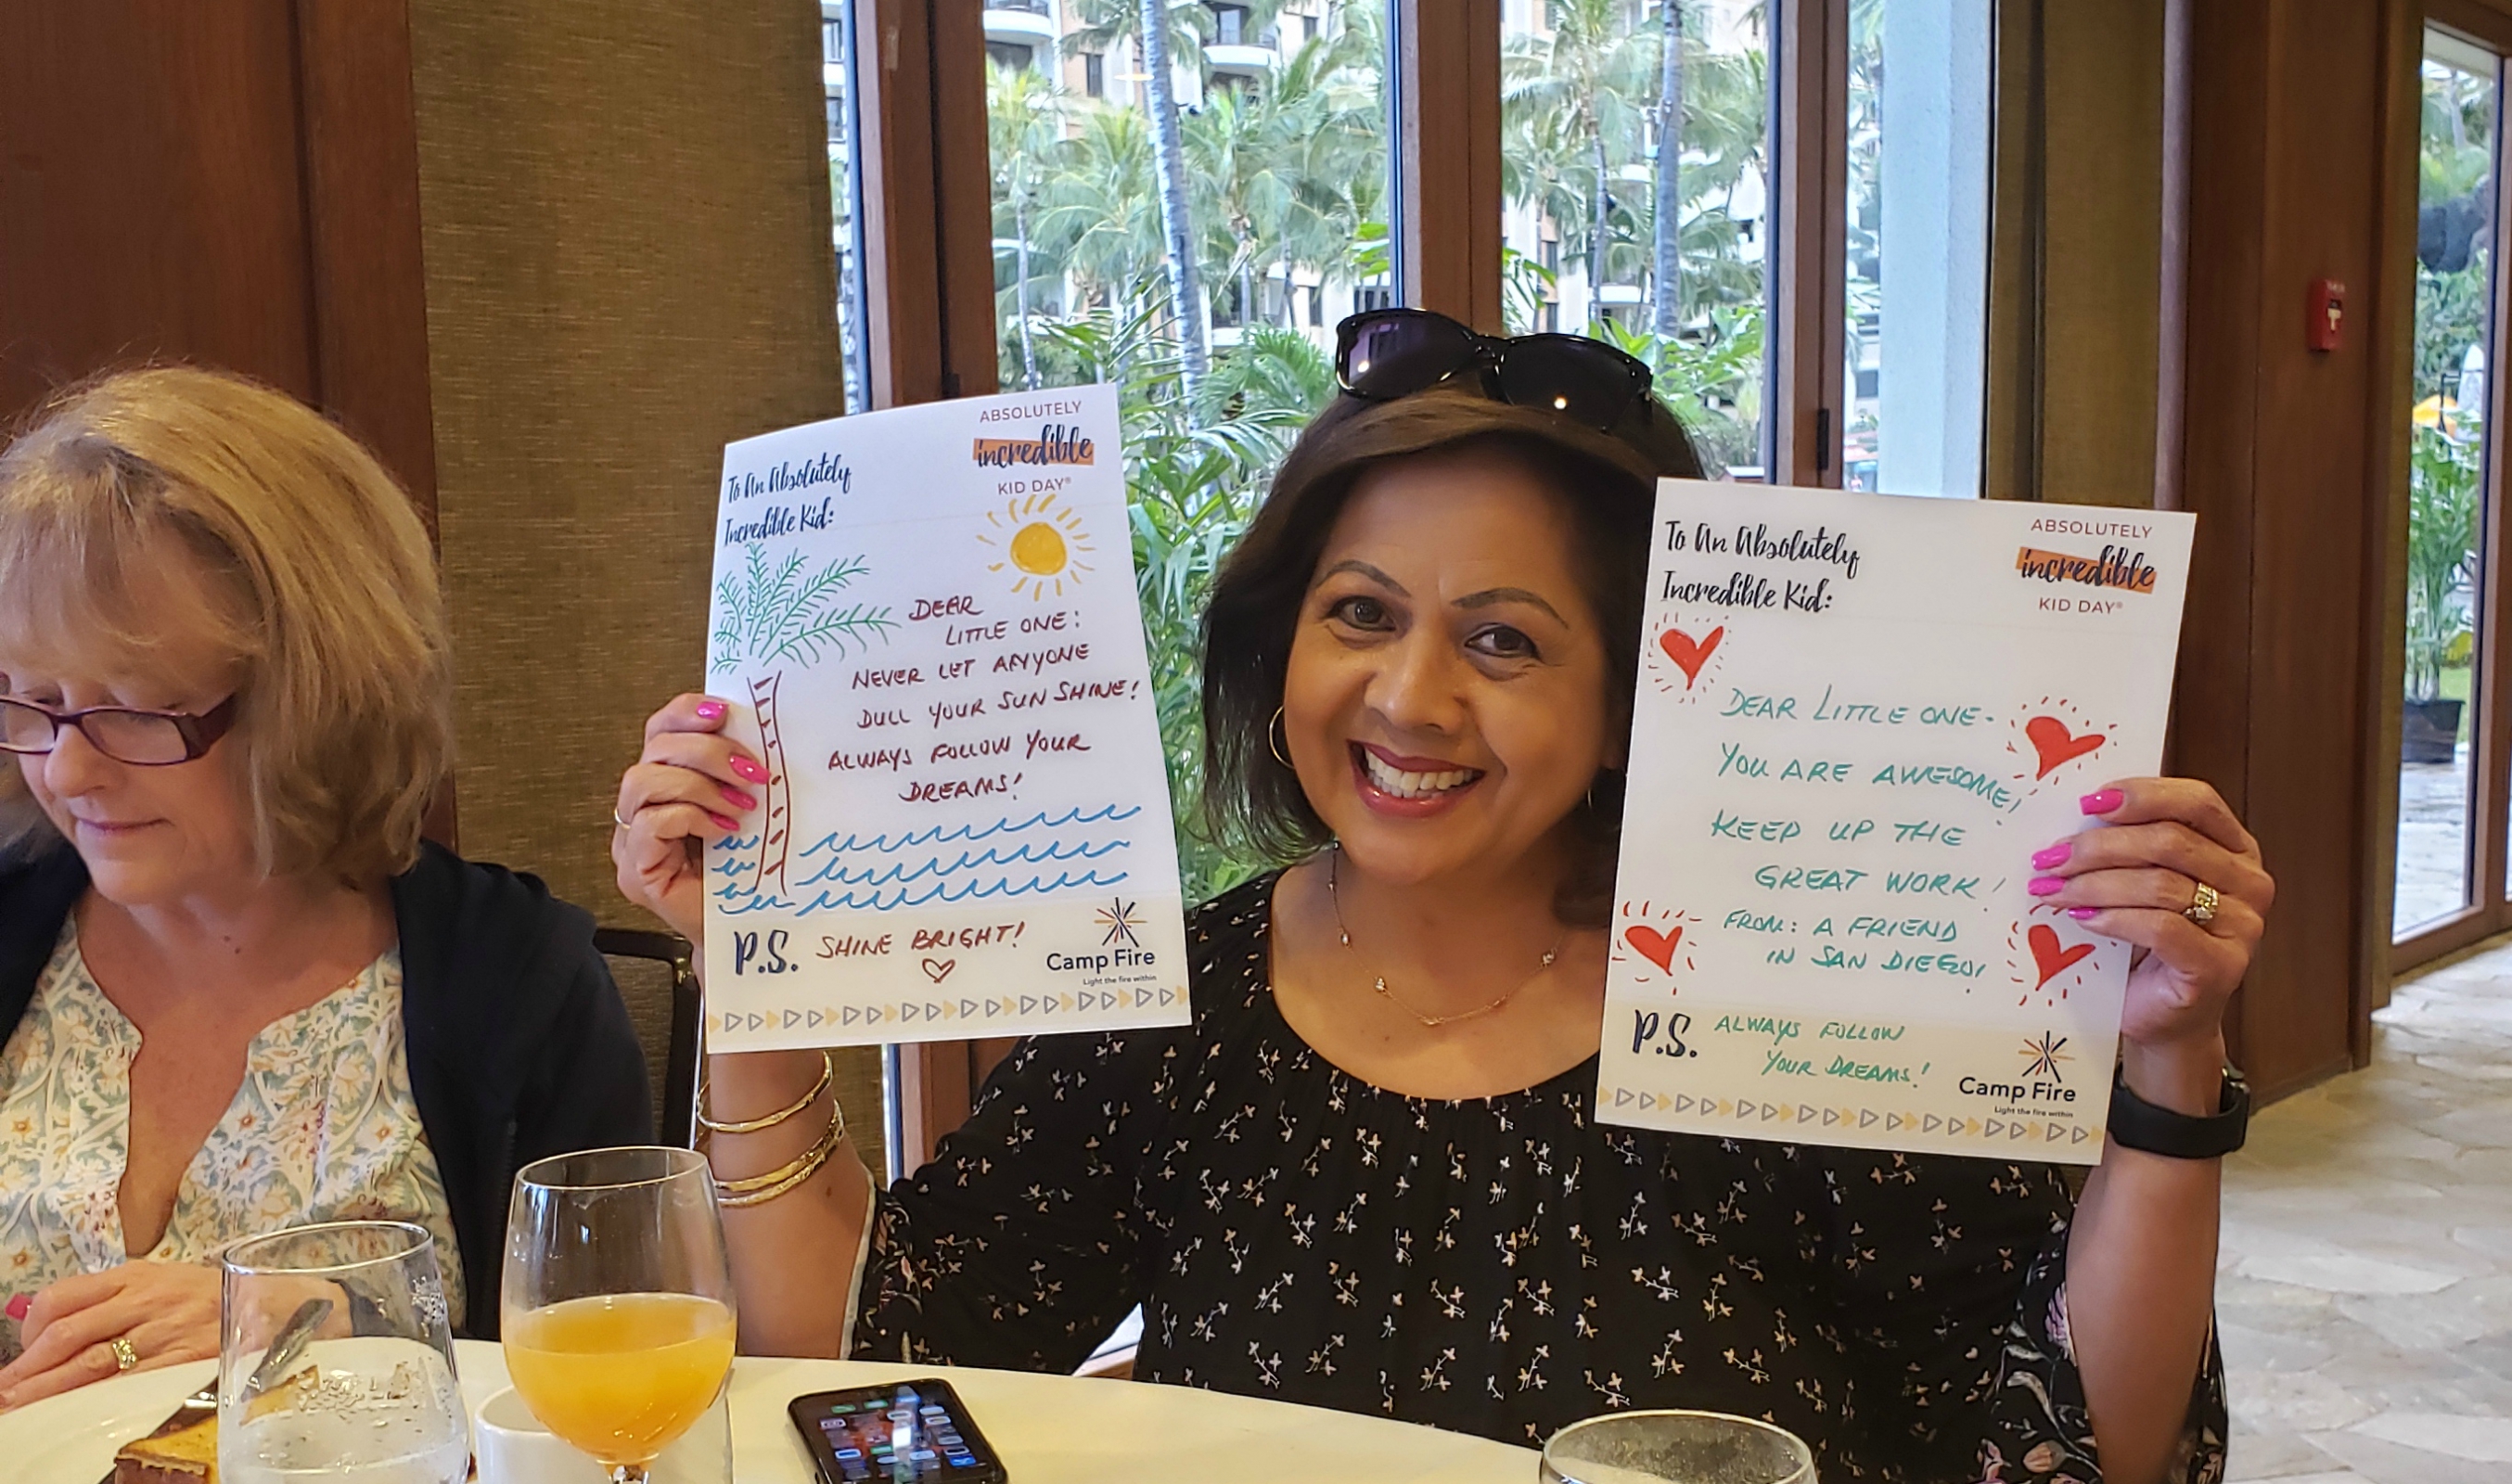 ABSOLUTELY
incredible
KID DAY®
To An Absolutely
Incredible Kid:
DEAR
LITTLE ONE:
NEVER LET ANYONE
DULL YOUR SUNSHINE!
ALWAYS FOLLOW YOUR
DREAMS!
P.S. SHINE BRIGHT!
Camp Fire
Light the fire within
ABSOLUTELY
incredible
KID DAY®
To An Absolutely
Incredible Kid:
DEAR LITTLE ONE-
YOU ARE AWESOME!
KEEP UP THE
GREAT WORK!
FROM: A FRIEND
IN SAN DIEGO!
P.S. ALWAYS FOLLOW
YOUR DREAMS!
Camp Fire
Light the fire within